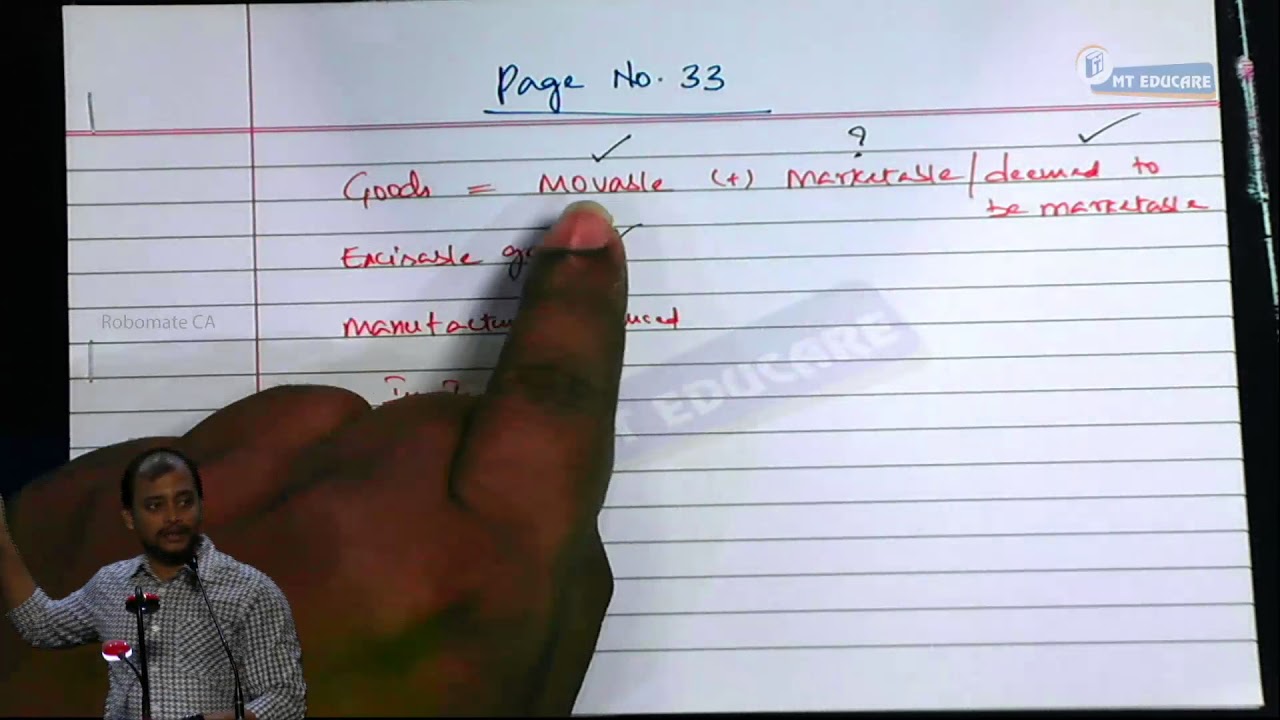 Page No. 33
MT EDUCARE
?
Goods = Movable (+) Marketable/deemed to
be marketable
Excisable
Robomate CA
MT EDUCARE